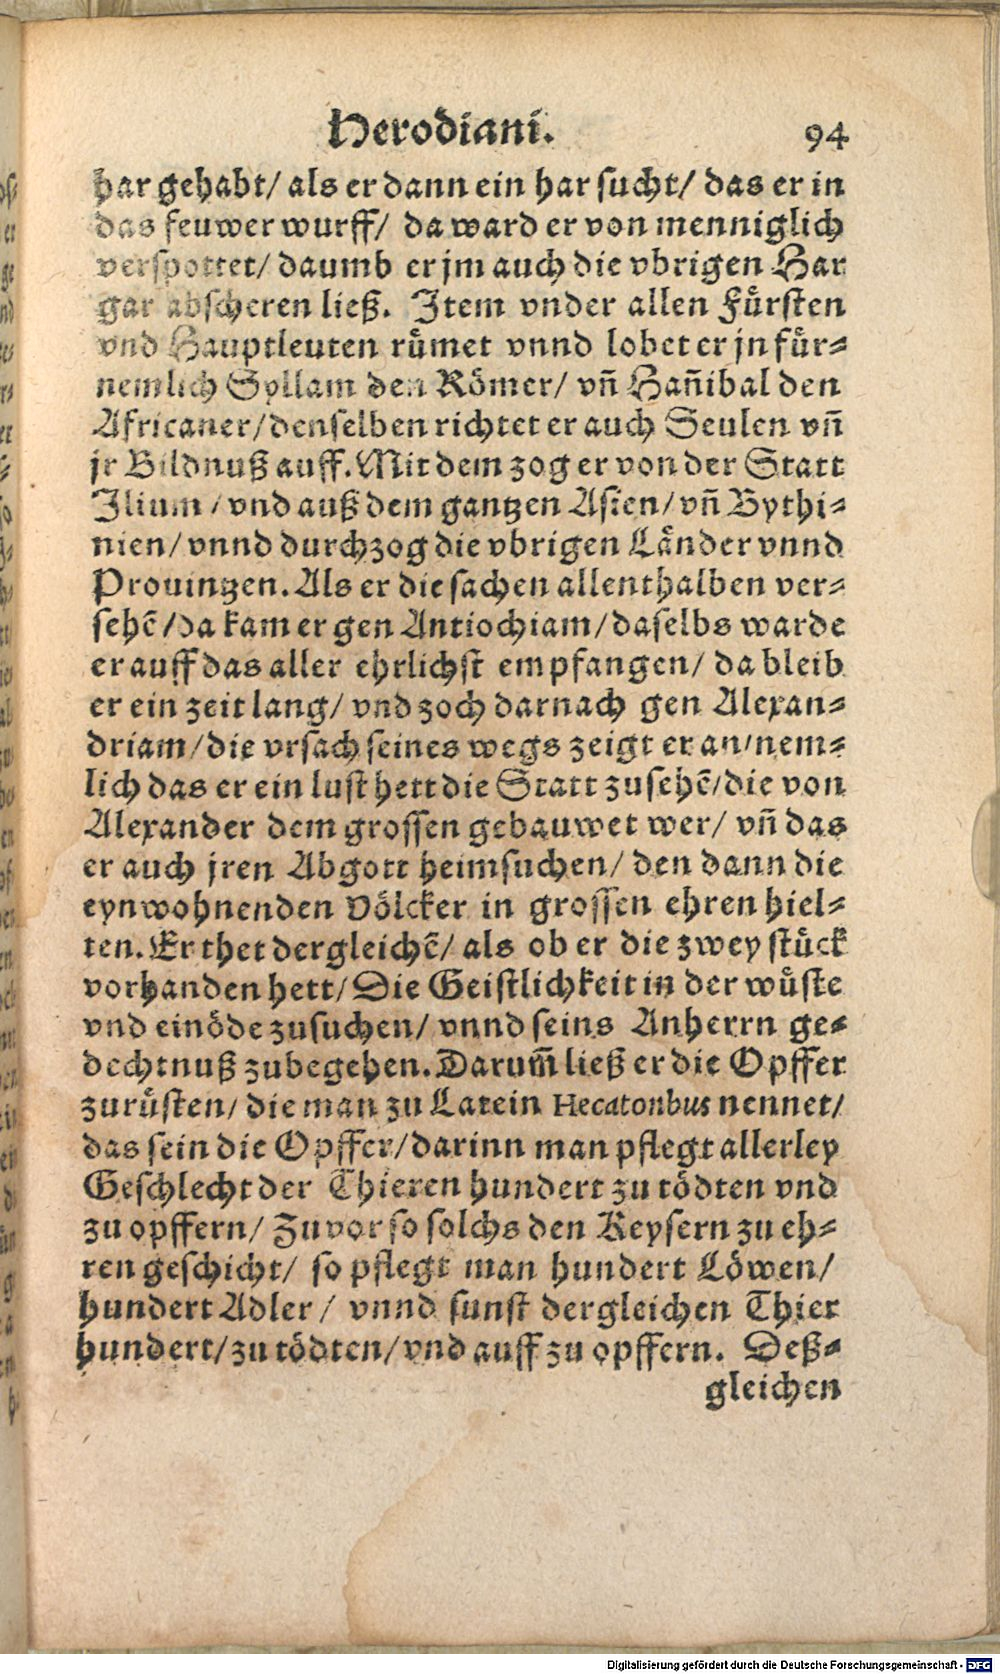 Herodiani. 94
har gehabt/ als er dann ein har sucht/ das er in
das feuwer wurff/ da ward er von menniglich
verspottet/ daumb er jm auch die vbrigen Har
gar abscheren ließ. Item vnder allen Fürsten
vnd Hauptleuten rümet vnnd lobet er jn für⸗
nemlich Syllam den Römer/ vñ Hañibal den
Africaner/ denselben richtet er auch Seulen vñ
jr Bildnuß auff. Mit dem zog er von der Statt
Ilium/ vnd auß dem gantzen Asien/ vñ Bythi⸗
nien/ vnnd durchzog die vbrigen Länder vnnd
Prouintzen. Als er die sachen allenthalben ver⸗
sehẽ/ da kam er gen Antiochiam/ daselbs warde
er auff das aller ehrlichst empfangen/ da bleib
er ein zeit lang/ vnd zoch darnach gen Alexan⸗
driam/ die vrsach seines wegs zeigt er an/ nem⸗
lich das er ein lust hett die Statt zusehẽ/ die von
Alexander dem grossen gebauwet wer/ vñ das
er auch jren Abgott heimsuchen/ den dann die
eynwohnenden Völcker in grossen ehren hiel⸗
ten. Er thet dergleichẽ/ als ob er die zwey stück
vorhanden hett/ Die Geistlichkeit in der wüste
vnd einöde zusuchen/ vnnd seins Anherrn ge⸗
dechtnuß zubegehen. Darum̃ ließ er die Opffer
zurüsten/ die man zu Latein Hecatonbus nennet/
das sein die Opffer/ darinn man pflegt allerley
Geschlecht der Thieren hundert zu tödten vnd
zu opffern/ Zuvor so solchs den Keysern zu eh⸗
ren geschicht/ so pflegt man hundert Löwen/
hundert Adler/ vnnd sunst dergleichen Thier
hundert/ zu tödten/ vnd auff zu opffern. Deß⸗
gleichen
Digitalisierung gefördert durch die Deutsche Forschungsgemeinschaft - DFG